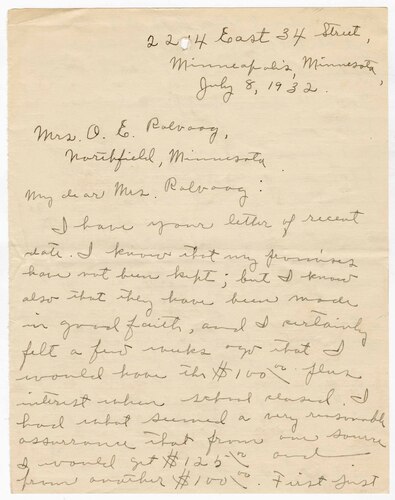 2214 East 34 Street,
Minneapolis, Minnesota,
July 8, 1932.
Mrs. O. E. Rolvaag,
Northfield, Minnesota
My dear Mrs. Rolvaag:
I have your letter of recent
date. I know that my promises
have not been kept; but I know
also that they have been made
in good faith, and I certainly
felt a few weeks ago that I
would have the $100 00 plus
interest when school closed. I
had what seemed a very reasonable
assurance that from one source
I would get $125 00 and
from another $100 00. First just